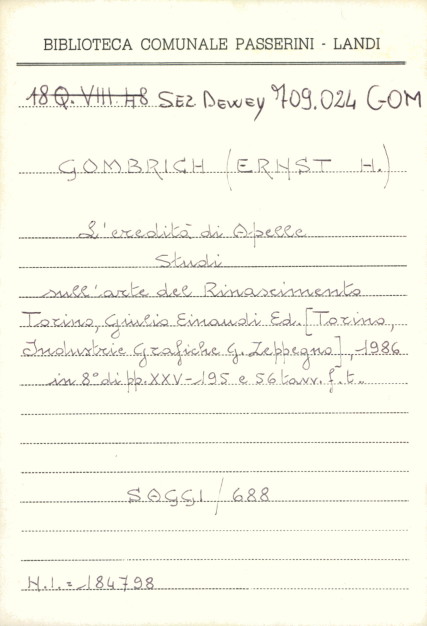 BIBLIOTECA COMUNALE PASSERINI - LANDI
18 Q. VIII. 48 SEZ DEWEY 709.024 GOM
GOMBRICH (ERNST H.)
L'eredità di Apelle
Studi
sull'arte del Rinascimento
Torino, Giulio Einaudi Ed. [Torino,
Industrie Grafiche G. Zeppegno], 1986
in 8° di pp. XXV-195 e 56 tavv. f. t..
SAGGI / 688
N.I. = 184798